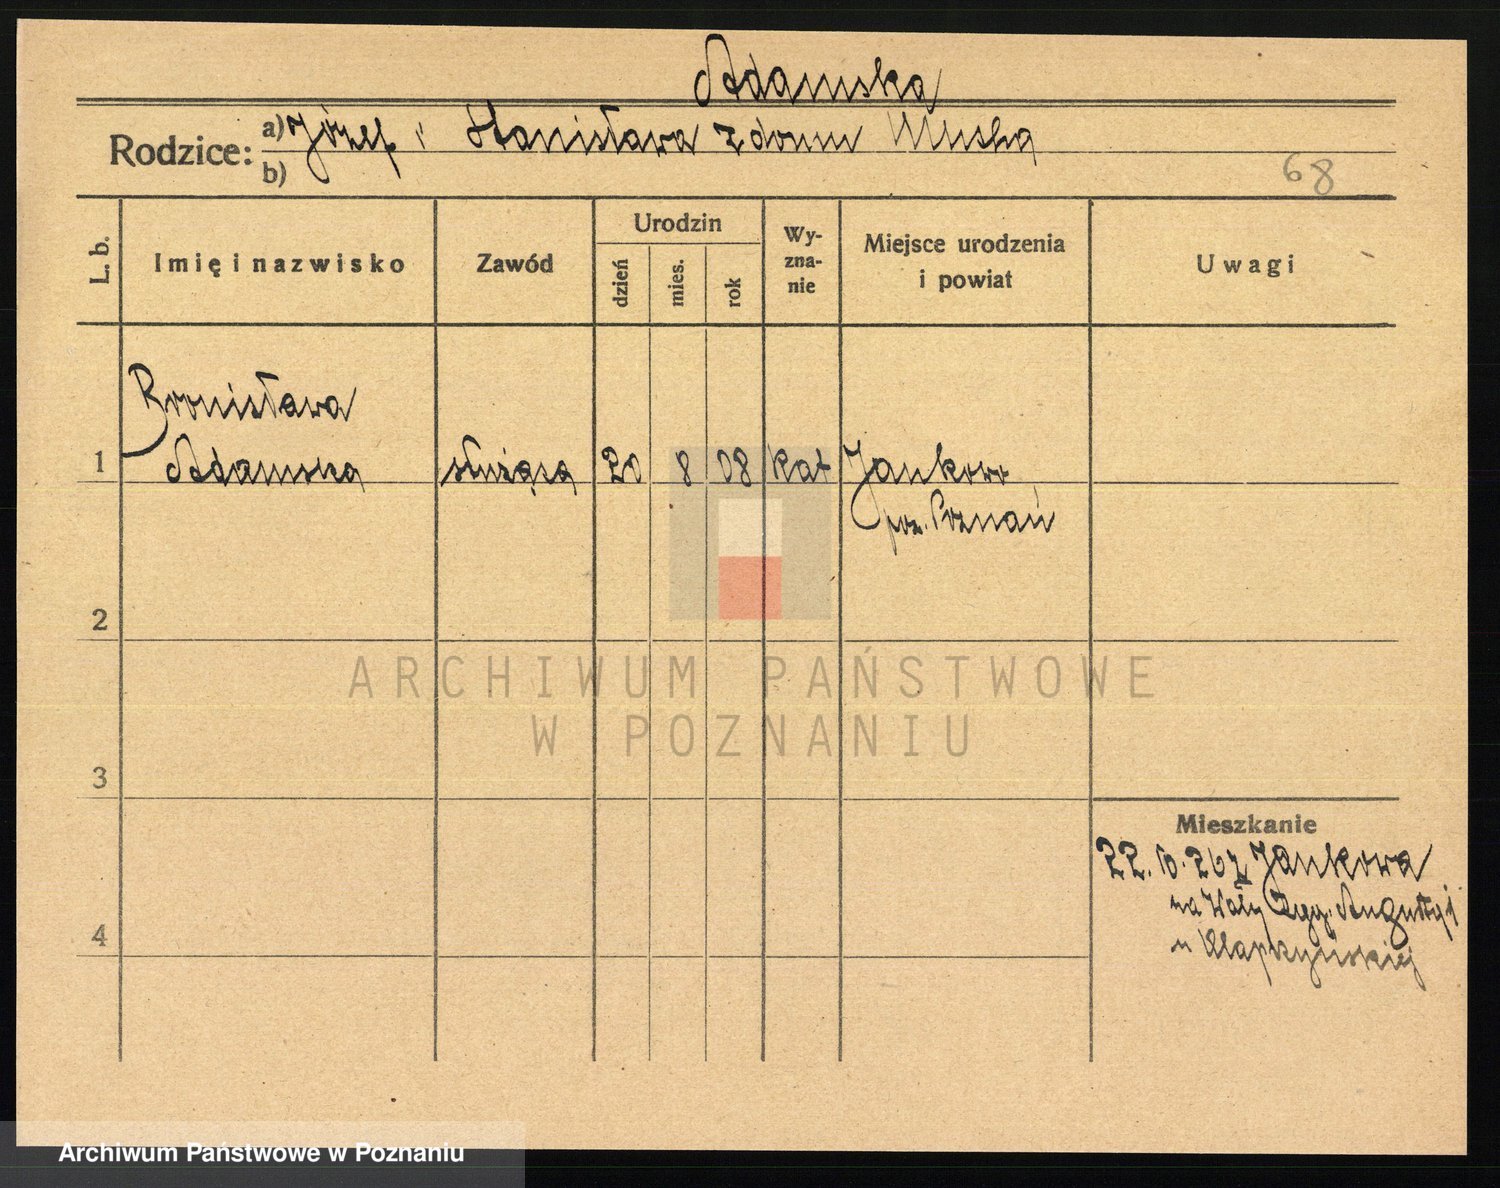 Adamska
Rodzice:
a) Józef i Stanisława z domu
b)
68
L. b.
Imię i nazwisko
Zawód
Urodzin
dzień
mies.
rok
Wy-
zna-
nie
Miejsce urodzenia
i powiat
Uwagi
Bronisława
1 Adamska służąca 20 8 08 kat Jankowo
pow. Poznań
2
ARCHIWUM PAŃSTWOWE
W POZNANIU
3
Mieszkanie
22. 10. 26 z Jankowa
na Wały Zyg. Augusta
4
u
Archiwum Państwowe w Poznaniu